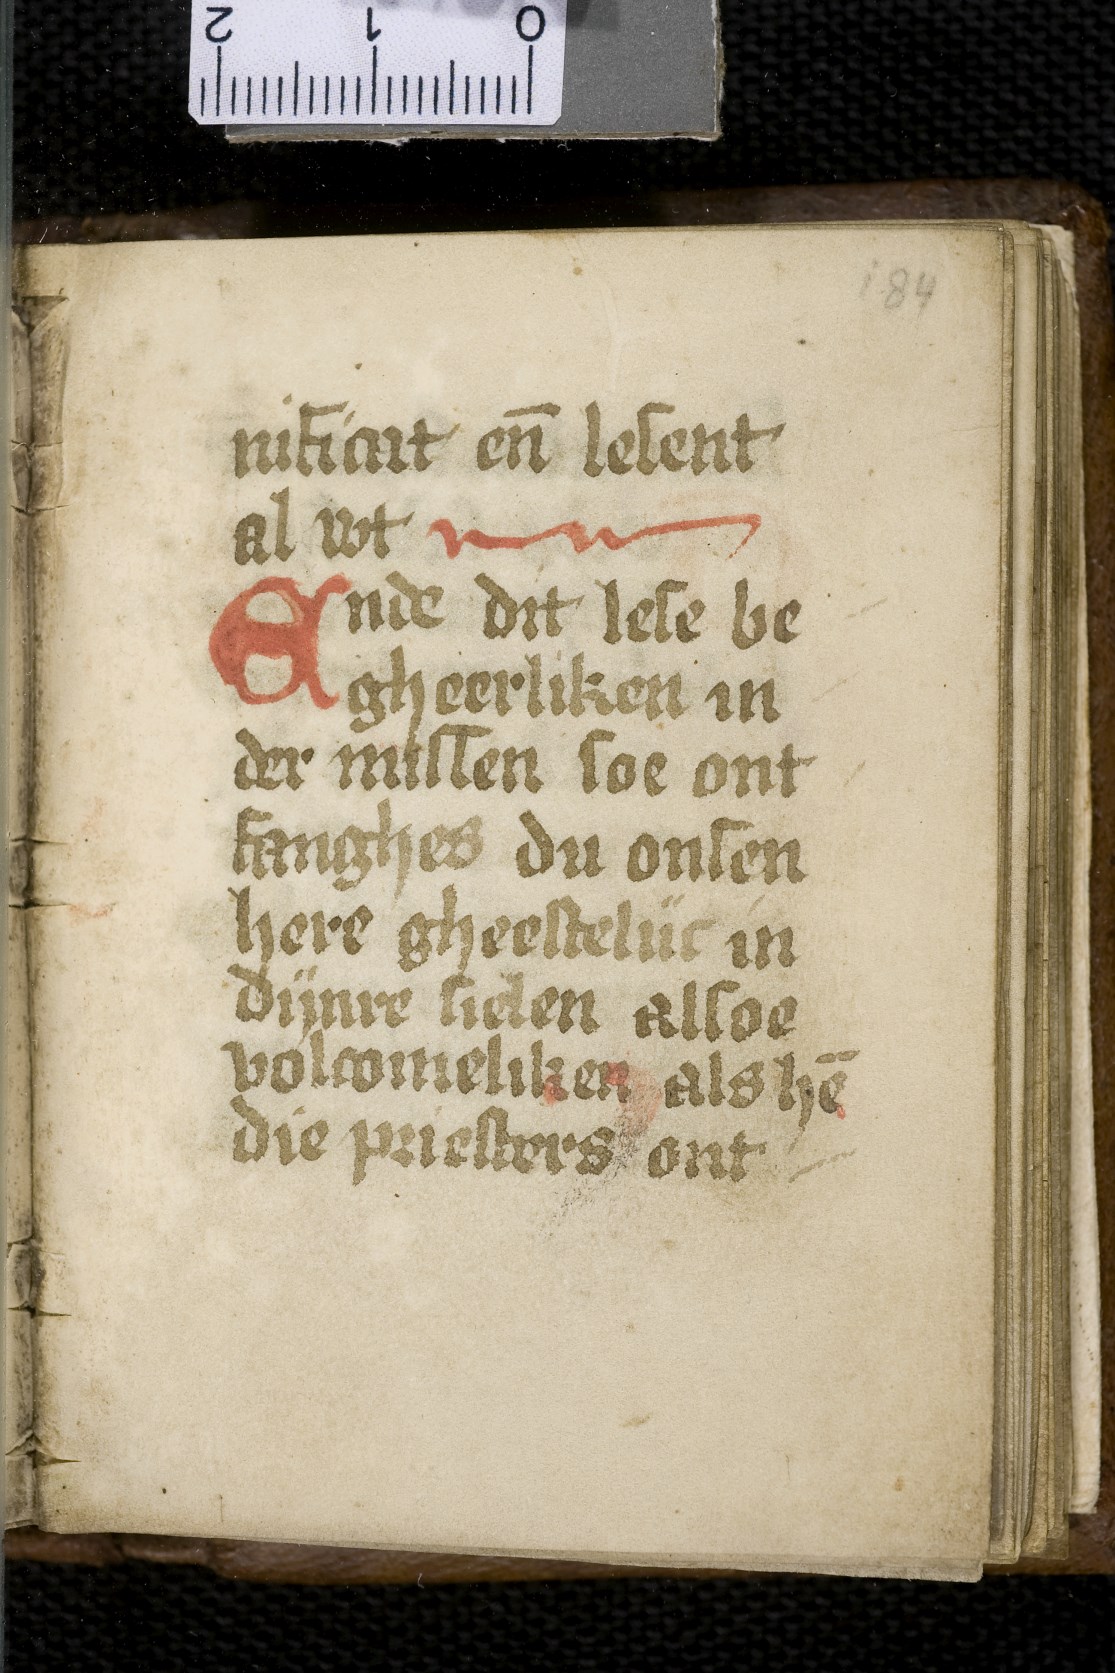 2 1 0
184
nificat en̄ lesent
al wt
Ende dit lese be
gheerliken in
der missen soe ont
fanghes du onsen
here gheesteliic in
dijnre sielen alsoe
volcomeliken als hē
die priesters ont